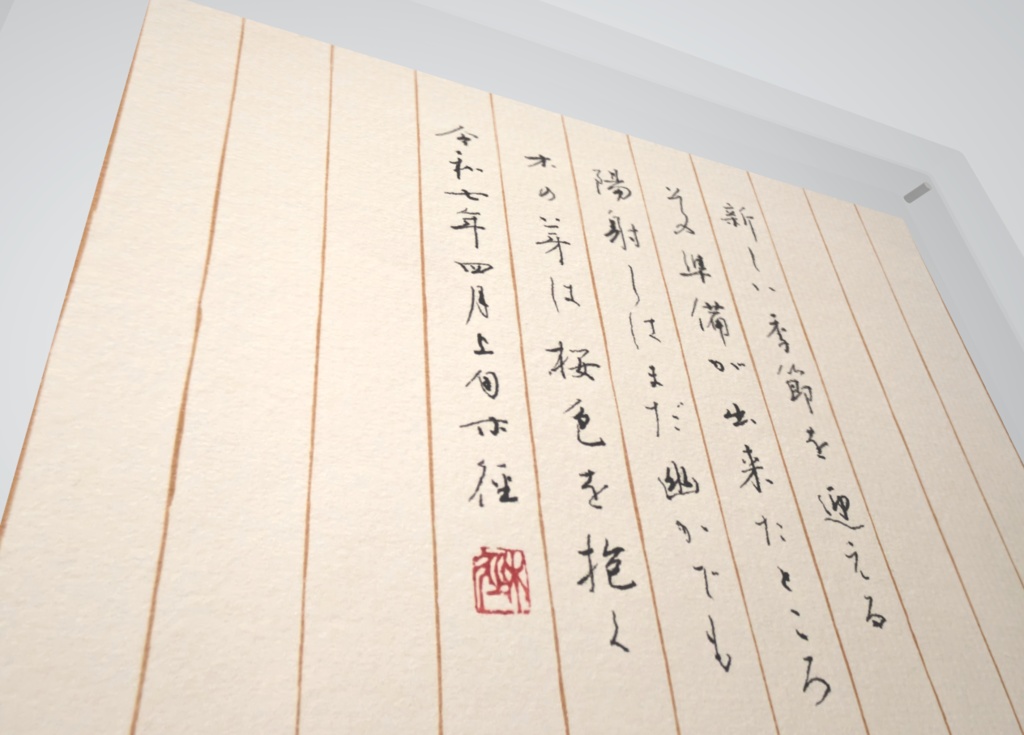 新しい季節を迎える
準備が出来たところ
陽射しはまだ幽かでも
木の芽は桜色を抱く
令和七年四月上旬 径